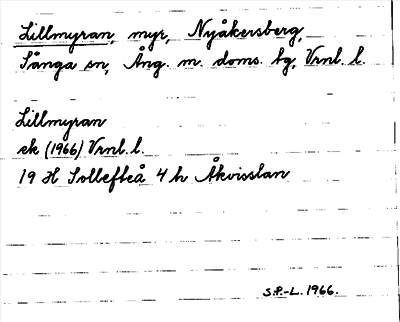 Lillmyran, myr, Nyåkersberg,
Sånga sn, Ång. m. doms. bg, Vrnl. l.
Lillmyran
ek (1966) Vrnl. l.
19 H Sollefteå 4 h Åkvisslan
S.P.-L. 1966.